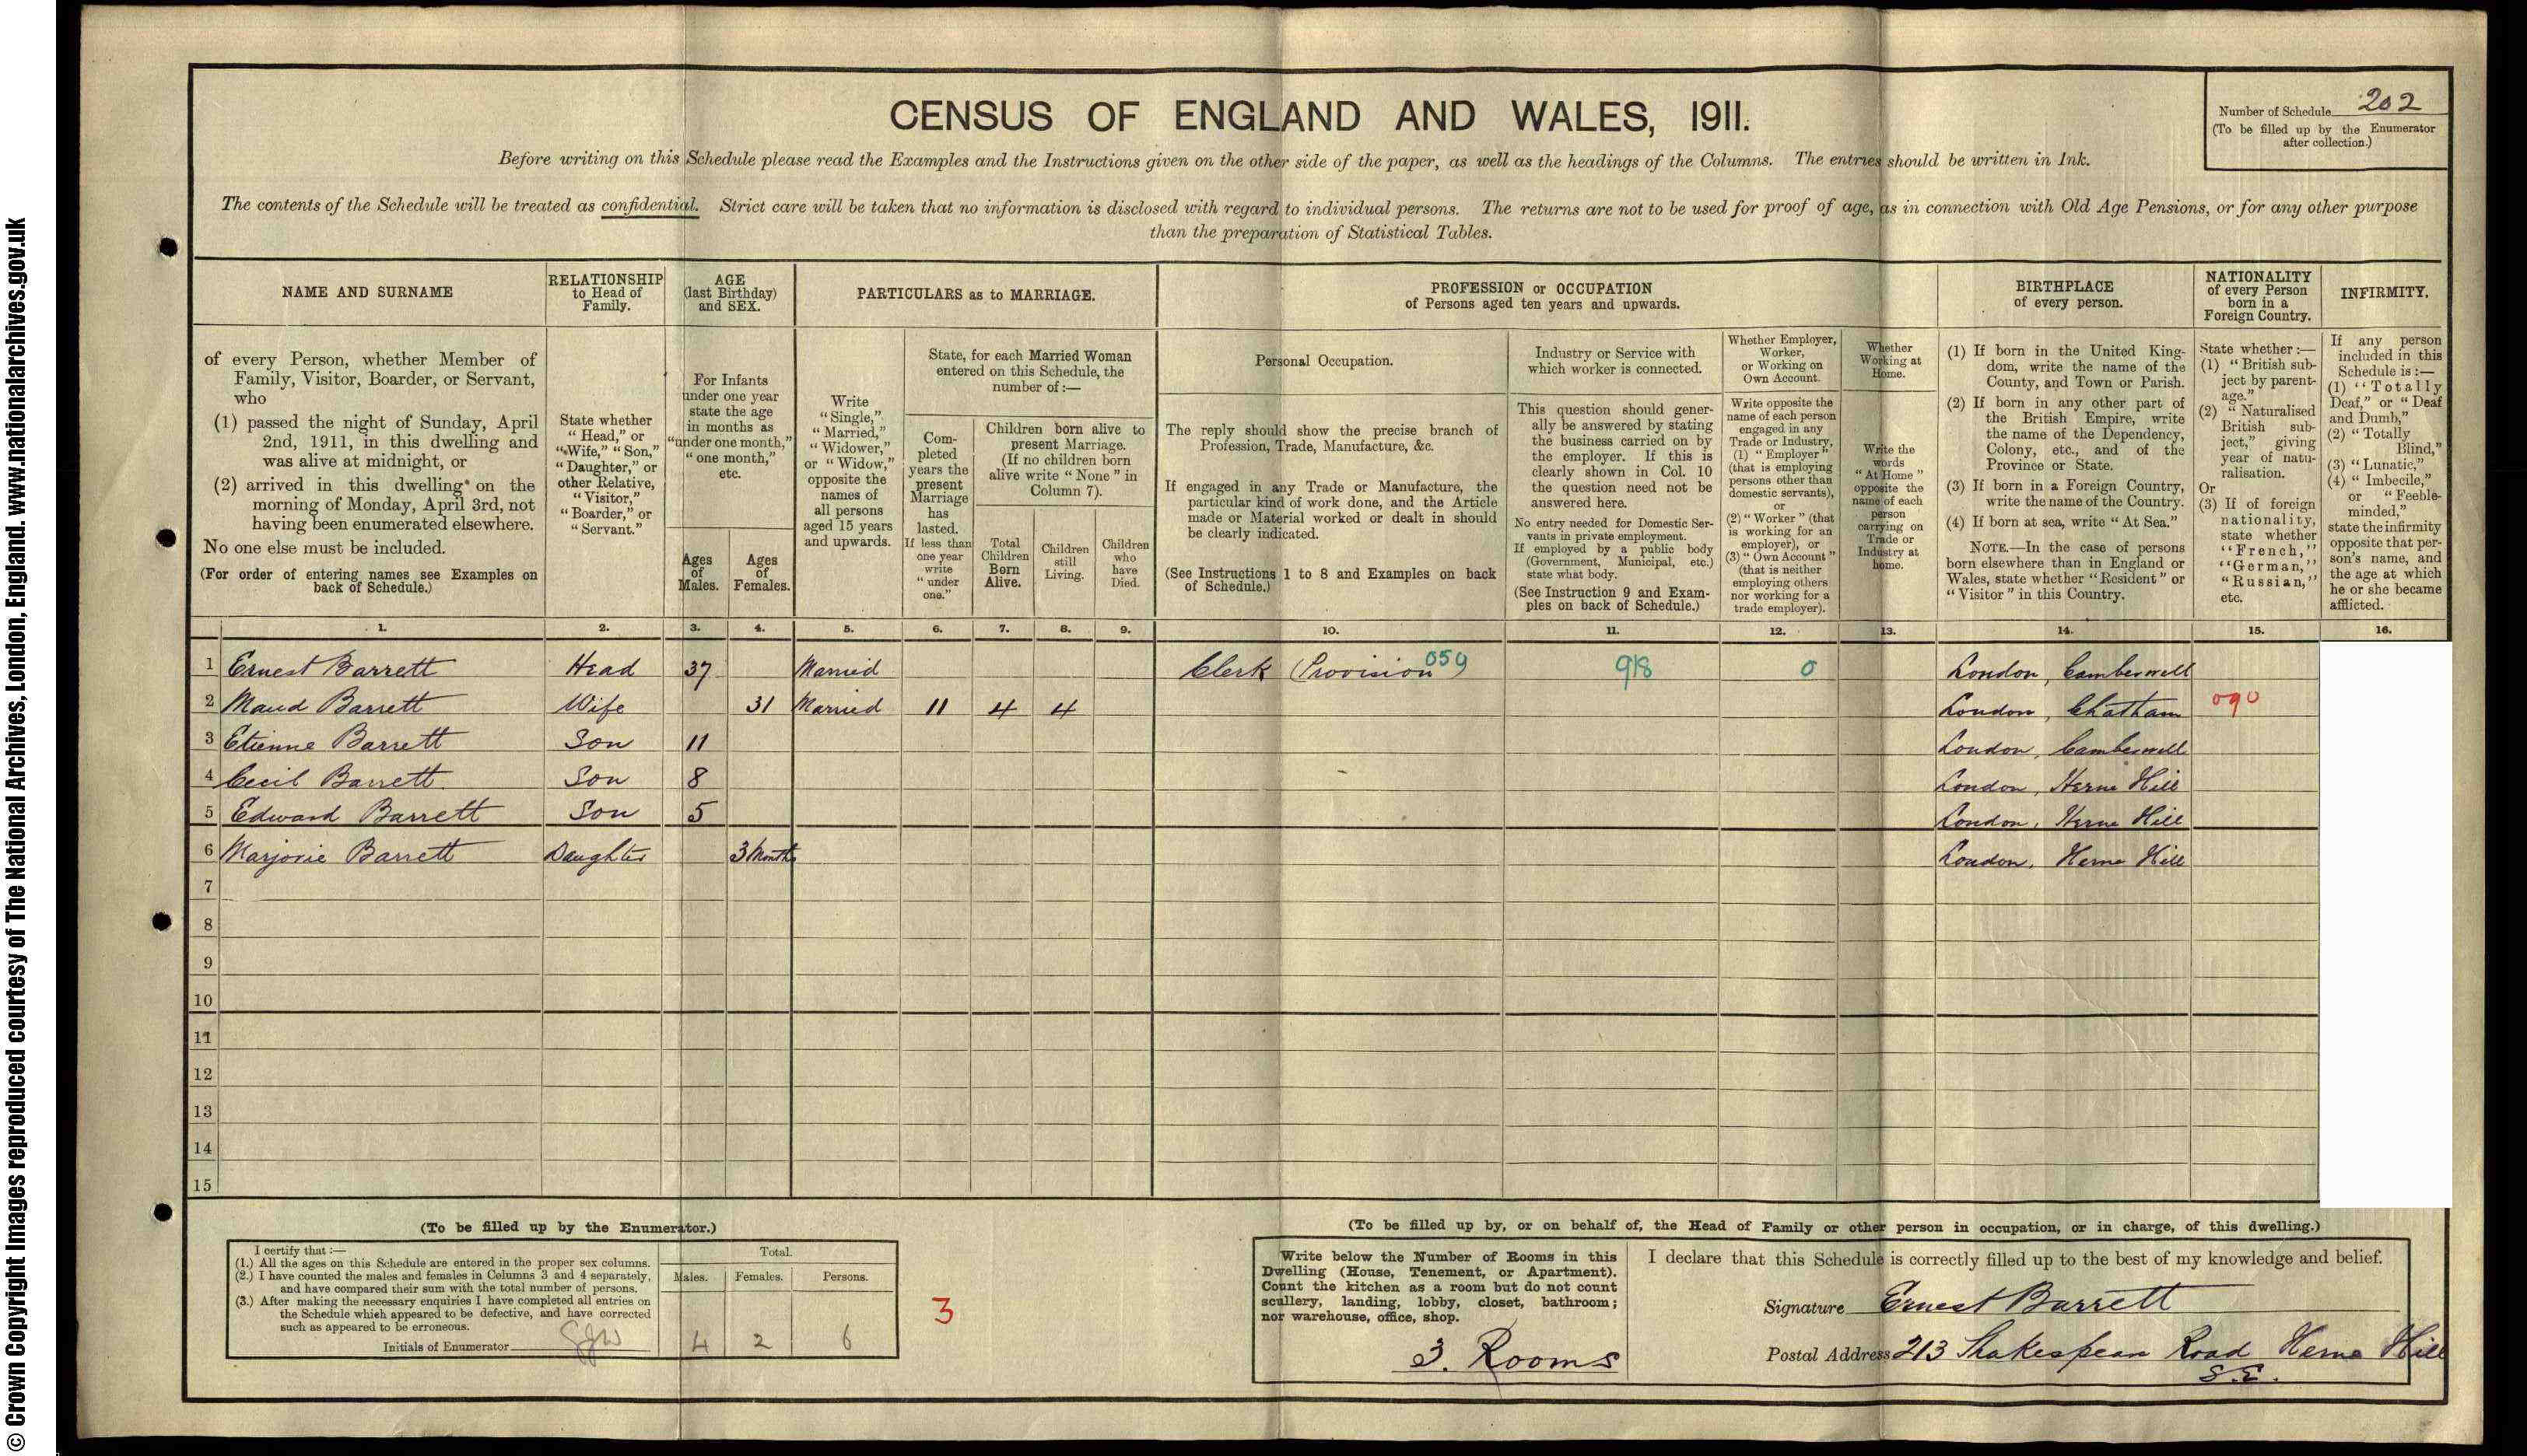 © Crown Copyright Images reproduced courtesy of The National Archives, London, England. www.nationalarchives.gov.uk
CENSUS OF ENGLAND AND WALES, 1911.
Number of Schedule 202
(To be filled up by the Enumerator
after collection.)
Before writing on this Schedule please read the Examples and the Instructions given on the other side of the paper, as well as the headings of the Columns. The entries should be written in Ink.
The contents of the Schedule will be treated as confidential. Strict care will be taken that no information is disclosed with regard to individual persons. The returns are not to be used for proof of age, as in connection with Old Age Pensions, or for any other purpose
than the preparation of Statistical Tables.
NAME AND SURNAME
of every Person, whether Member of
Family, Visitor, Boarder, or Servant,
who
(1) passed the night of Sunday, April
2nd, 1911, in this dwelling and
was alive at midnight, or
(2) arrived in this dwelling on the
morning of Monday, April 3rd, not
having been enumerated elsewhere.
No one else must be included.
(For order of entering names see Examples on
back of Schedule.)
RELATIONSHIP
to Head of
Family.
State whether
"Head," or
"Wife," "Son,"
"Daughter," or
other Relative,
"Visitor,"
"Boarder," or
"Servant."
AGE
(last Birthday)
and SEX.
For Infants
under one year
state the age
in months as
"under one month,"
"one month,"
etc.
Ages
of
Males.
Ages
of
Females.
PARTICULARS as to MARRIAGE.
Write
"Single,"
"Married,"
"Widower,"
or "Widow,"
opposite the
names of
all persons
aged 15 years
and upwards.
State, for each Married Woman
entered on this Schedule, the
number of:—
Com-
pleted
years the
present
Marriage
has
lasted.
If less than
one year
write
"under
one."
Children born alive to
present Marriage.
(If no children born
alive write "None" in
Column 7).
Total
Children
Born
Alive.
Children
still
Living.
Children
who
have
Died.
PROFESSION or OCCUPATION
of Persons aged ten years and upwards.
Personal Occupation.
The reply should show the precise branch of
Profession, Trade, Manufacture, &c.
If engaged in any Trade or Manufacture, the
particular kind of work done, and the Article
made or Material worked or dealt in should
be clearly indicated.
(See Instructions 1 to 8 and Examples on back
of Schedule.)
Industry or Service with
which worker is connected.
This question should gener-
ally be answered by stating
the business carried on by
the employer. If this is
clearly shown in Col. 10
the question need not be
answered here.
No entry needed for Domestic Ser-
vants in private employment.
If employed by a public body
(Government, Municipal, etc.)
state what body.
(See Instruction 9 and Exam-
ples on back of Schedule.)
Whether Employer,
Worker,
or Working on
Own Account.
Write opposite the
name of each person
engaged in any
Trade or Industry,
(1) "Employer"
(that is employing
persons other than
domestic servants),
or
(2) "Worker" (that
is working for an
employer), or
(3) "Own Account"
(that is neither
employing others
nor working for a
trade employer).
Whether
Working at
Home.
Write the
words
"At Home"
opposite the
name of each
person
carrying on
Trade or
Industry at
home.
BIRTHPLACE
of every person.
(1) If born in the United King-
dom, write the name of the
County, and Town or Parish.
(2) If born in any other part of
the British Empire, write
the name of the Dependency,
Colony, etc., and of the
Province or State.
(3) If born in a Foreign Country,
write the name of the Country.
(4) If born at sea, write "At Sea."
NOTE.—In the case of persons
born elsewhere than in England or
Wales, state whether "Resident" or
"Visitor" in this Country.
NATIONALITY
of every Person
born in a
Foreign Country.
State whether:—
(1) "British sub-
ject by parent-
age."
(2) "Naturalised
British sub-
ject," giving
year of natu-
ralisation.
Or
(3) If of foreign
nationality,
state whether
"French,"
"German,"
"Russian,"
etc.
INFIRMITY.
If any person
included in this
Schedule is:—
(1) "Totally
Deaf," or "Deaf
and Dumb,"
(2) "Totally
Blind,"
(3) "Lunatic,"
(4) "Imbecile,"
or "Feeble-
minded,"
state the infirmity
opposite that per-
son's name, and
the age at which
he or she became
afflicted.
1. 2. 3. 4. 5. 6. 7. 8. 9. 10. 11. 12. 13. 14. 15. 16.
1 Ernest Barrett Head 37 Married Clerk (Provision 059 918 0 London, Camberwell
2 Maud Barrett Wife 31 Married 11 4 4 London, Chatham 090
3 Etienne Barrett Son 11 London, Camberwell
4 Cecil Barrett Son 8 London, Herne Hill
5 Edward Barrett Son 5 London, Herne Hill
6 Marjorie Barrett Daughter 3 Months London, Herne Hill
7
8
9
10
11
12
13
14
15
(To be filled up by the Enumerator.)
I certify that:—
(1.) All the ages on this Schedule are entered in the proper sex columns.
(2.) I have counted the males and females in Columns 3 and 4 separately,
and have compared their sum with the total number of persons.
(3.) After making the necessary enquiries I have completed all entries on
the Schedule which appeared to be defective, and have corrected
such as appeared to be erroneous.
Initials of Enumerator
Total.
Males. Females. Persons.
4 2 6
3
(To be filled up by, or on behalf of, the Head of Family or other person in occupation, or in charge, of this dwelling.)
Write below the Number of Rooms in this
Dwelling (House, Tenement, or Apartment).
Count the kitchen as a room but do not count
scullery, landing, lobby, closet, bathroom;
nor warehouse, office, shop.
3. Rooms
I declare that this Schedule is correctly filled up to the best of my knowledge and belief.
Signature Ernest Barrett
Postal Address 213 Shakespeare Road Herne Hill
S.E.